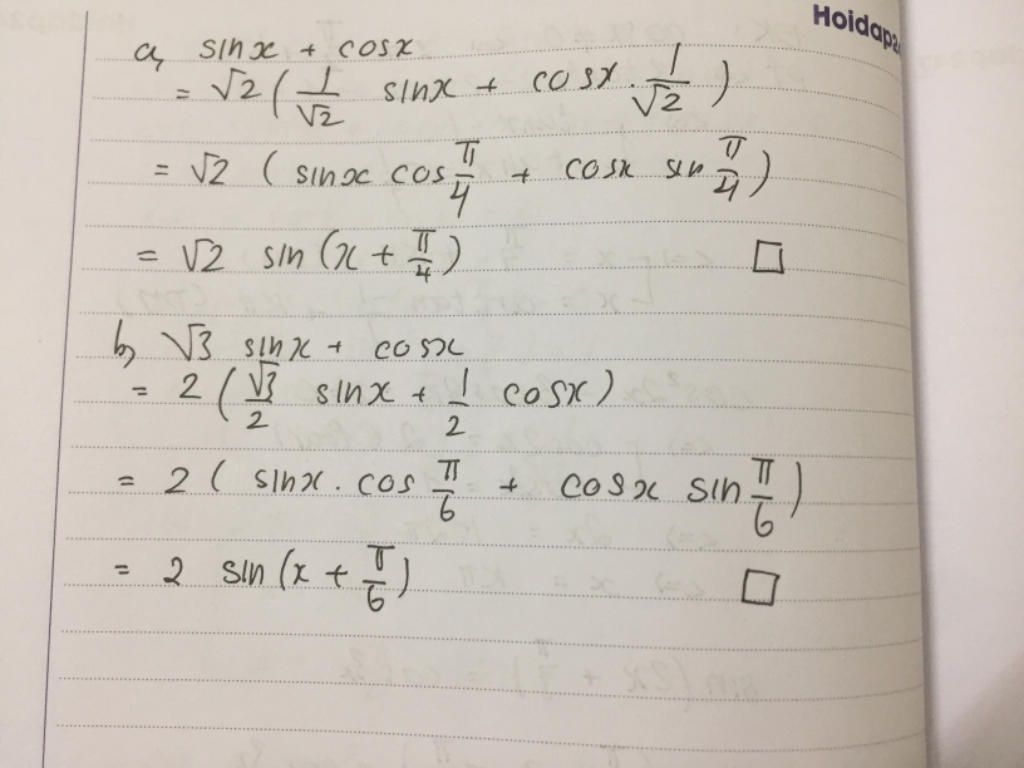 Hoidap24
a, sinx + cosx
= √2 ( 1/√2 sinx + cosx . 1/√2 )
= √2 ( sinx cos π/4 + cosx sin π/4 )
= √2 sin (x + π/4) □
b, √3 sinx + cosx
= 2 ( √3/2 sinx + 1/2 cosx )
= 2 ( sinx . cos π/6 + cosx sin π/6 )
= 2 sin (x + π/6) □